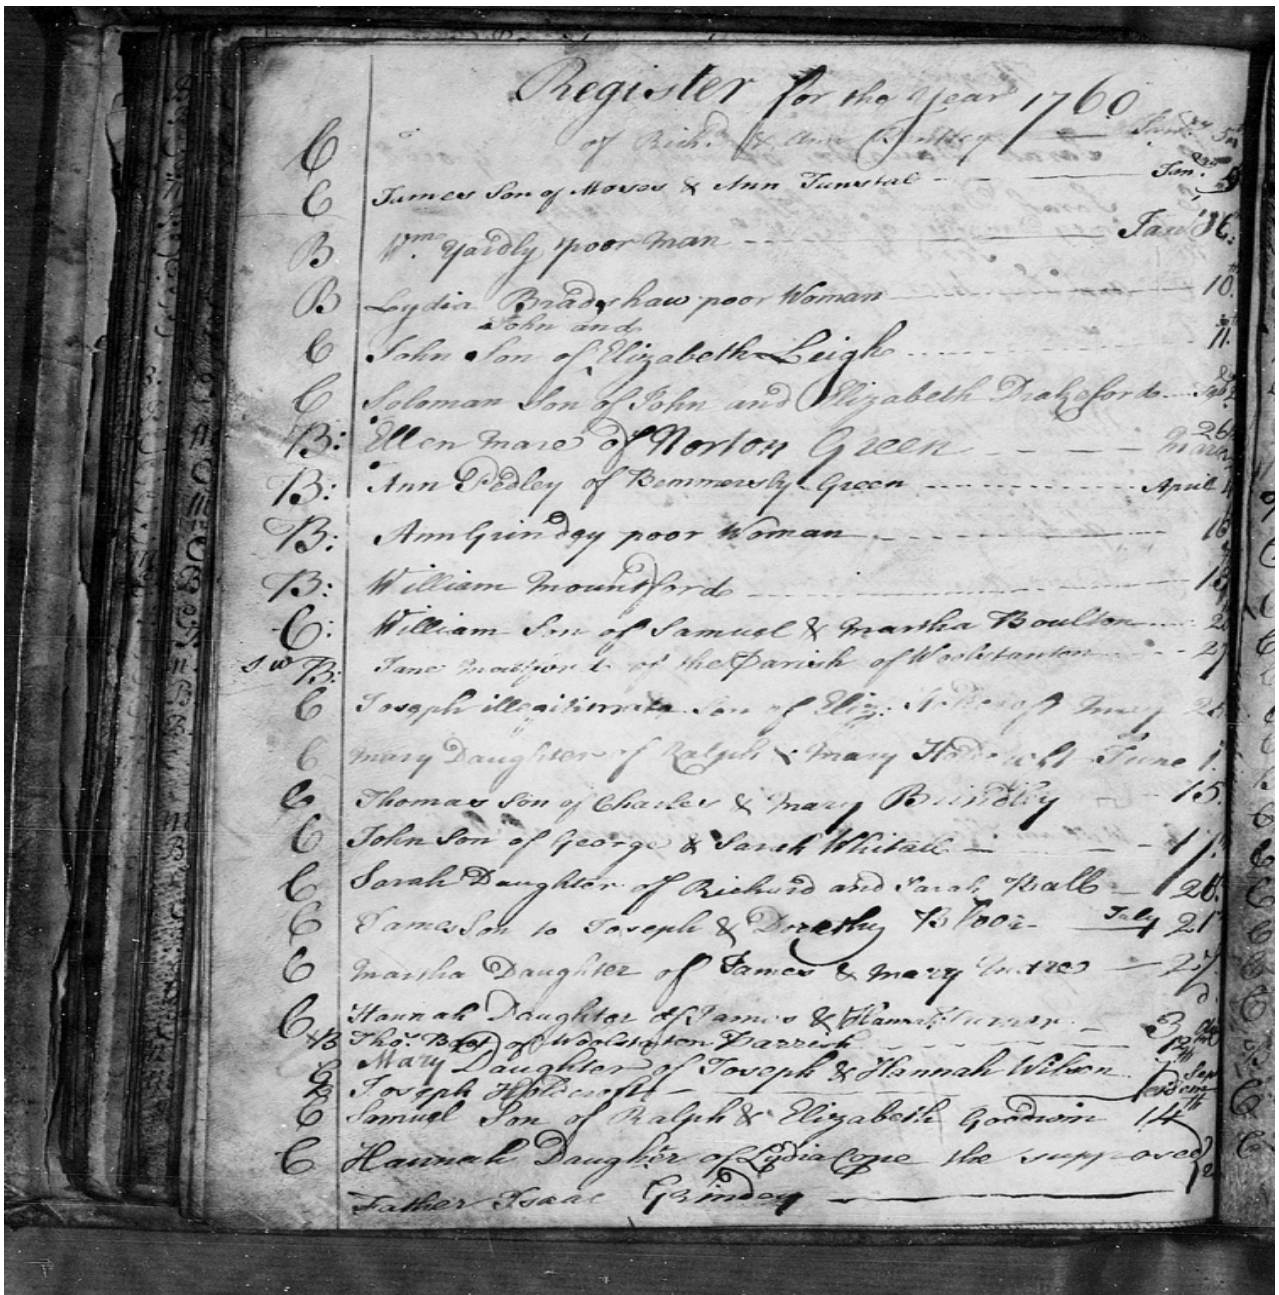 Register for the Year 1760
C of Rich.d & Ann
C James Son of Moses & Ann Tunstal Jan.
B W.m Yardly poor man Jan
B Lydia Bradshaw poor Woman 10.
John and
C John Son of Elizabeth Leigh 11.
C Soloman Son of John and Elizabeth Drakeford
B: Ellen Mare of Norton Green 26
B: Ann Pedley of Bemmersly Green April
B: Ann Grindey poor Woman 16
B: William Mountford
C: William Son of Samuel & Martha Boulton
B: Jane of the Parish of Woolstanton 27
C Joseph illegitimate Son of Eliz: May
C Mary Daughter of Ralph & Mary June 1.
C Thomas Son of Charles & Mary Brindley 15.
C John Son of George & Sarah Whitall 17.
C Sarah Daughter of Richard and Sarah Ball
C James Son to Joseph & Dorothy Bloor July 21
C Martha Daughter of James & Mary 27
C Hannah Daughter of James & Hannah Turner 3
B Tho.s of Woolstanton Parrish 12
C Mary Daughter of Joseph & Hannah Wilson Sep
Joseph Holdcroft
C Samuel Son of Ralph & Elizabeth Goodwin 14
C Hannah Daughter of Lydia Cope the supposed
Father Isaac Grindey